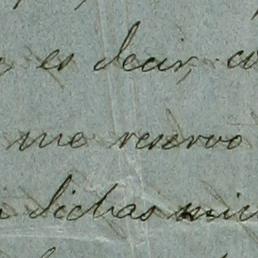 es decir, co
me reservo
dichas